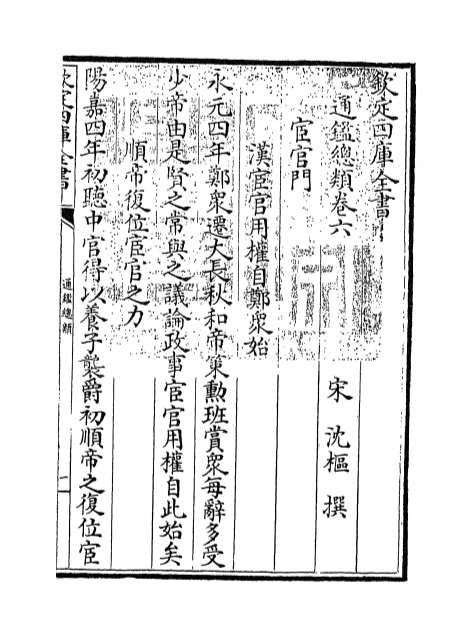 欽定四庫全書
通鑑總類卷六
宋 沈樞 撰
宦官門
漢宦官用權自鄭衆始
永元四年鄭衆遷大長秋和帝策勲班賞衆每辭多受
少帝由是賢之常與之議論政事宦官用權自此始矣
順帝復位宦官之力
陽嘉四年初聽中官得以養子襲爵初順帝之復位宦
欽定四庫全書
通鑑總類
一